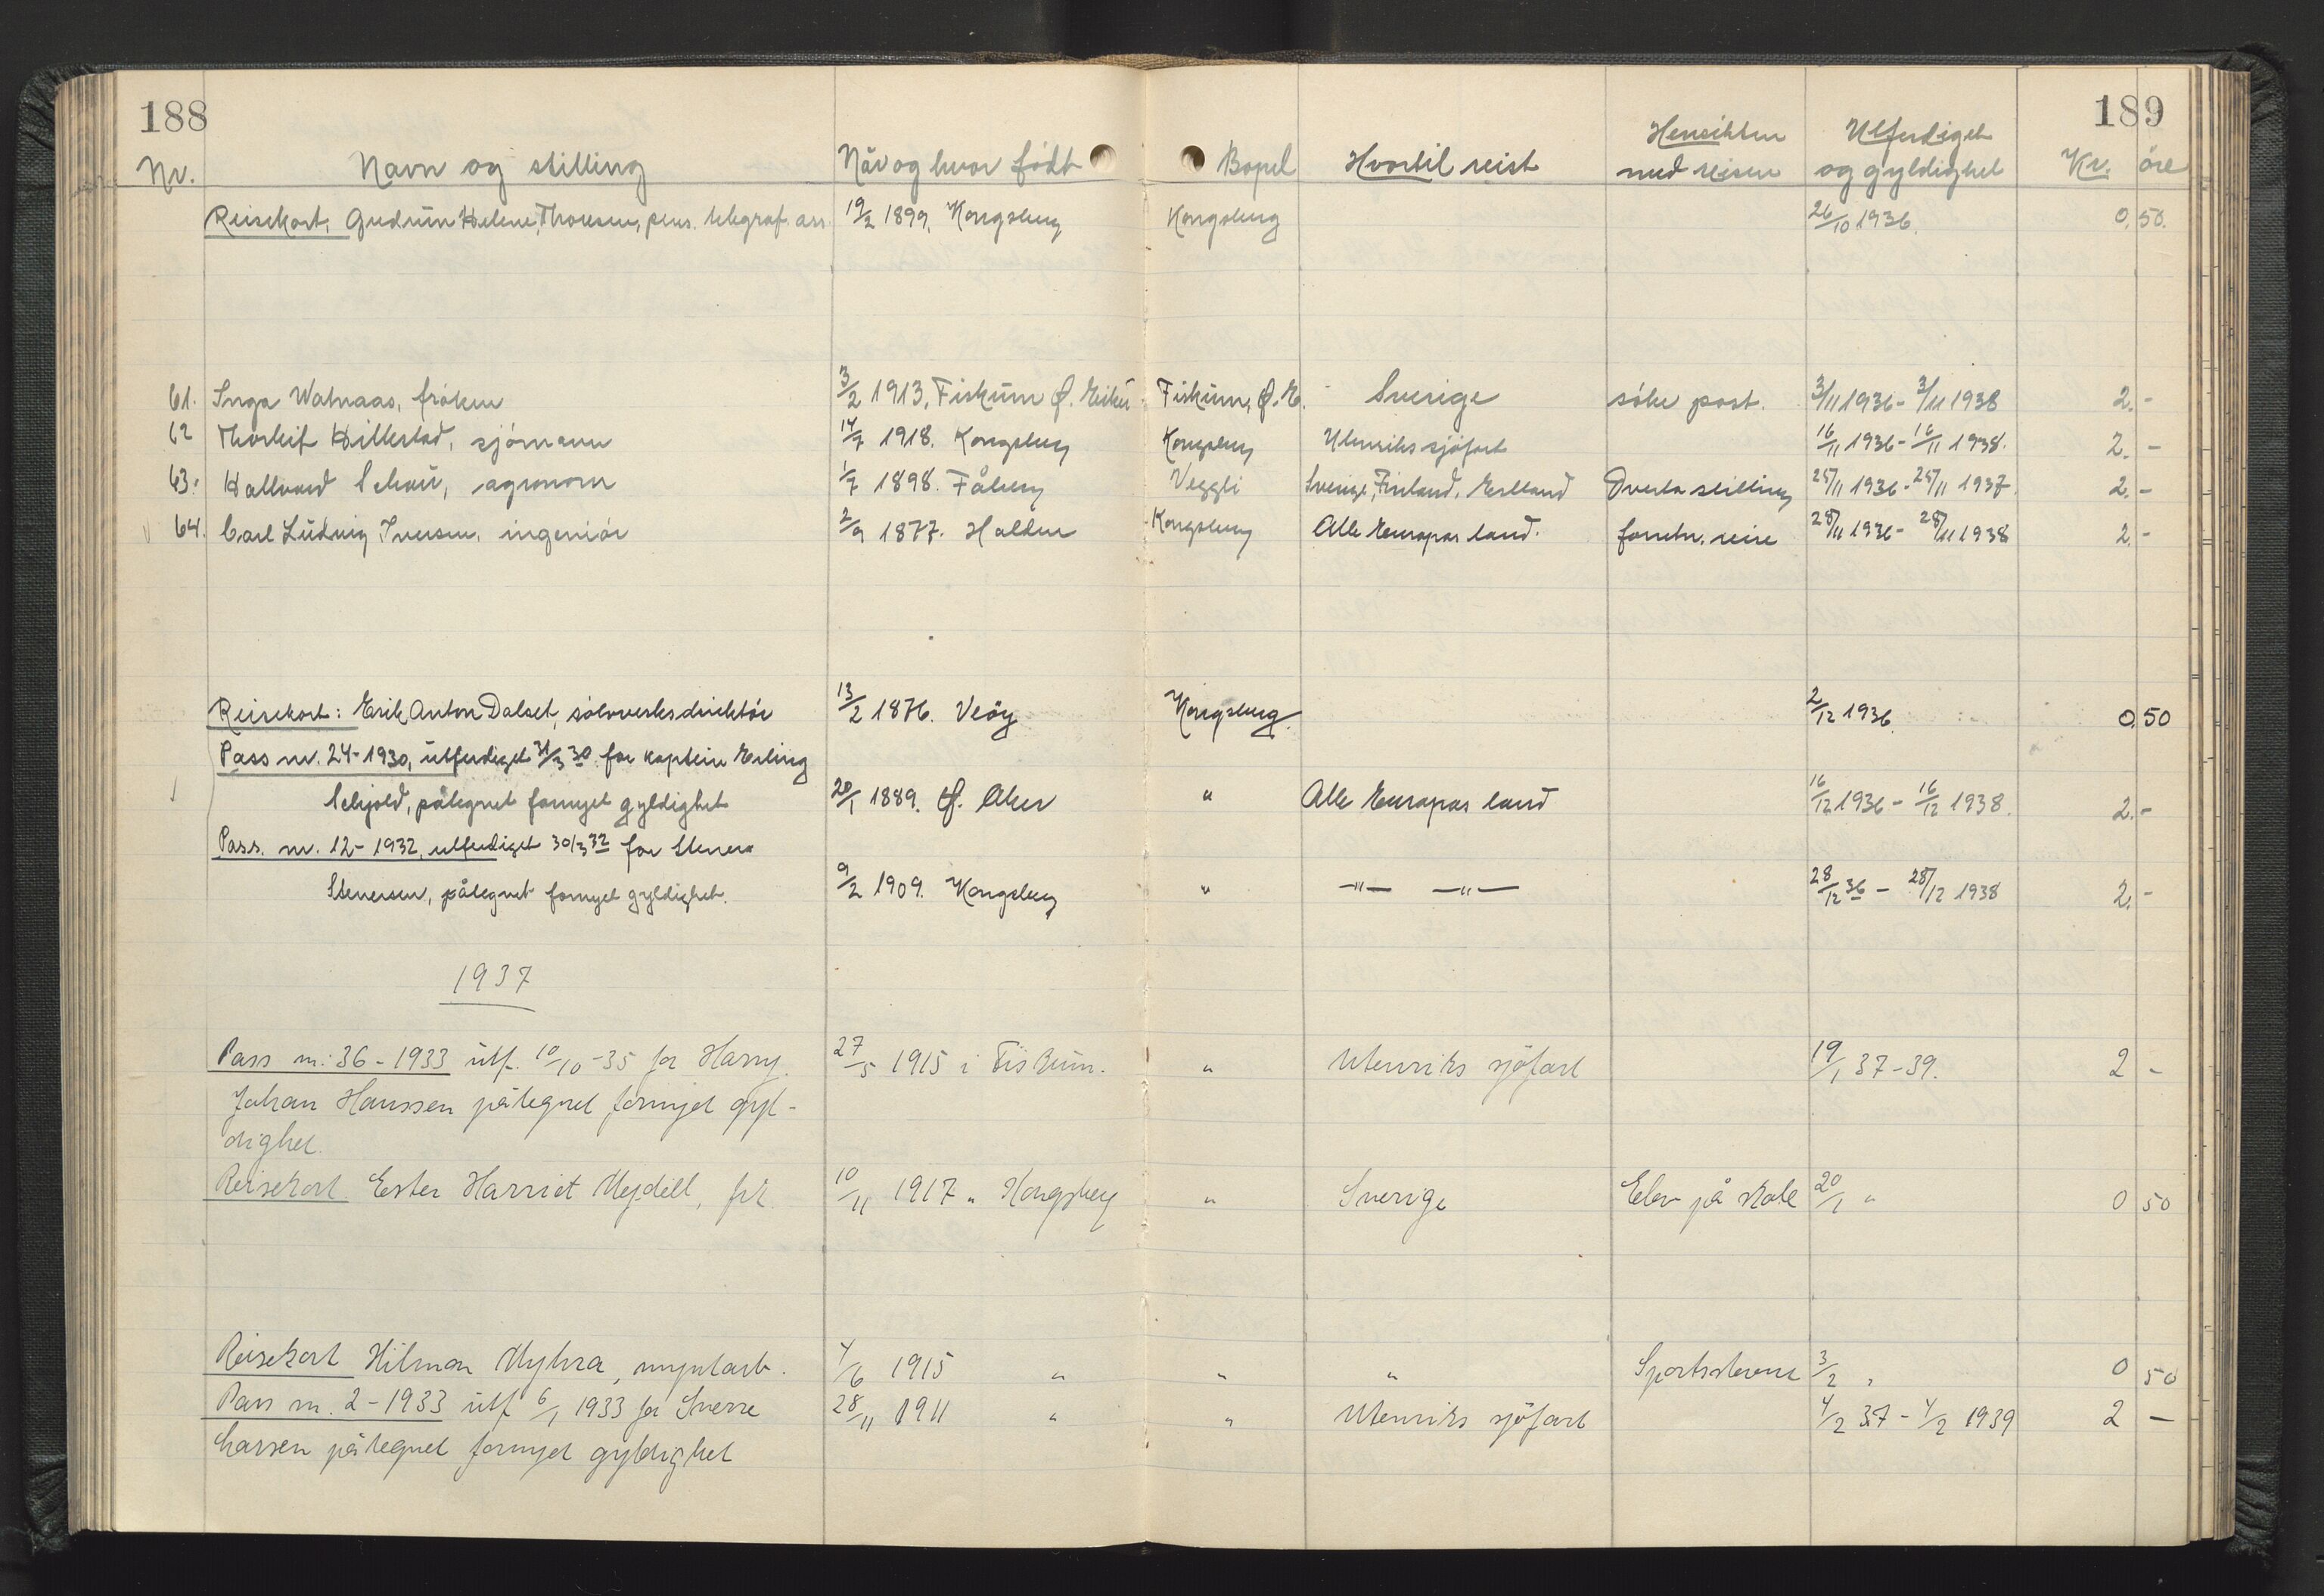 188
189
Nr. Navn og stilling Når og hvor født Bopel Hvortil reist Hensikten med reisen Utferdiget og gyldighet Kr. öre
Reisekort, Gudrun Helene Thoresen, pens. telegraf. ass. 19/2 1899, Kongsberg Kongsberg 26/10 1936. 0.50.
61. Inga Watnaas, fröken 3/2 1913, Fiskum Ø. Eiker Fiskum, Ø. E. Sverige söke post. 3/11 1936 - 3/11 1938 2.-
62 Thorleif Hillestad, sjömann 14/7 1918. Kongsberg Kongsberg Utenriks sjöfart 16/11 1936 - 16/11 1938. 2.-
63. Hallvard Schou, agronom 1/7 1898. Fåberg Veggli Sverige, Finland, Estland Overta stilling 25/11 1936 - 25/11 1937. 2.-
64. Carl Ludvig Iversen, ingeniör 2/9 1877. Halden Kongsberg Alle Europas land. forretn. reise 28/11 1936 - 28/11 1938 2.-
Reisekort: Erik Anton Dalset, sölvverksdirektör 13/2 1876. Veöy Kongsberg. 2/12 1936. 0.50
Pass nr. 24-1930, utferdiget 31/3 30 for kaptein Erling
Schjold, påtegnet fornyet gyldighet 20/1 1889. Ø. Aker " Alle Europas land 16/12 1936 - 16/12 1938. 2.-
Pass. nr. 12-1932, utferdiget 30/3 32 for Stener
Stenersen, påtegnet fornyet gyldighet. 9/2 1909. Kongsberg " -"- -"- 28/12 36 - 28/12 1938 2.-
1937
Pass nr: 36-1933 utf. 10/10-35 for Harry 27/5 1915 i Fiskum. " Utenriks sjöfart 19/1 37-39. 2 -
Johan Hanssen påtegnet fornyet gyl-
dighet.
Reisekort Ester Harriet Mejdell, frk. 10/11 1917 " Kongsberg " Sverige Elev på skole 20/1 " 0 50
Reisekort Hilmar Myhra, myntarb. 4/6 1915 " " " Sportsstevne 3/2 " 0 50
Pass nr. 2-1933 utf 6/1 1933 for Sverre 28/11 1911 " " Utenriks sjöfart 4/2 37 - 4/2 1939 2 -
Larssen påtegnet fornyet gyldighet